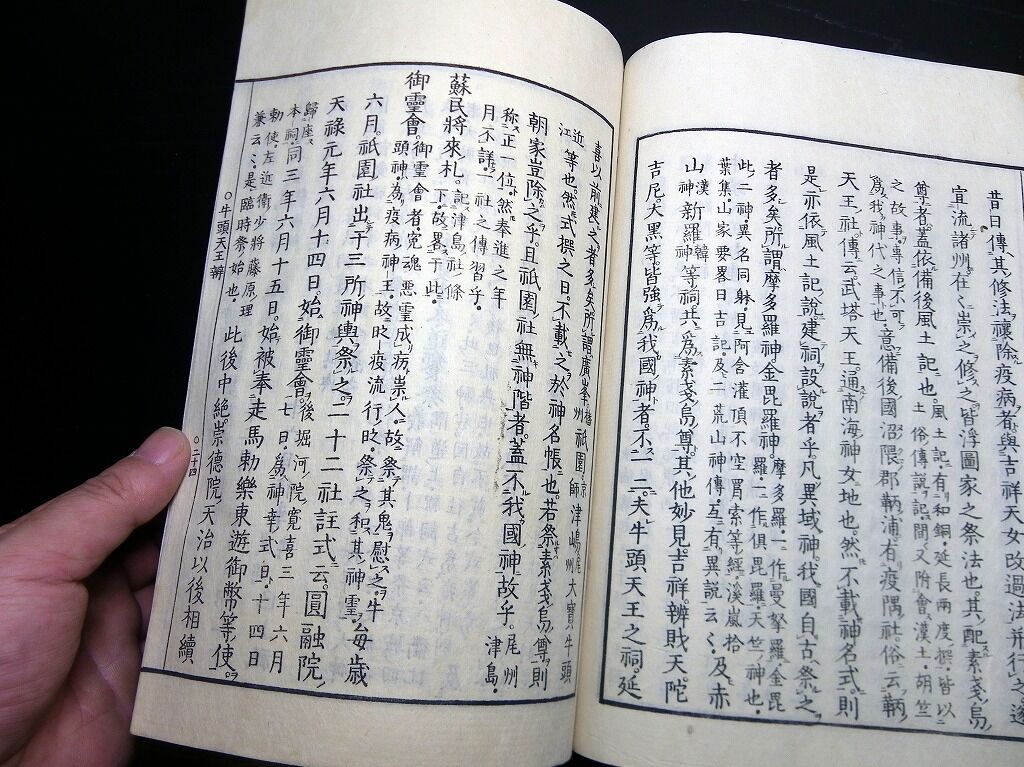 昔日傳其修法禳除疫病者與吉祥天女改過法幷行之遂
宜流諸州在々崇之修之皆浮圖家之祭法也其配素戔烏
尊者蓋依備後風土記也風土記有和銅延長兩度撰皆以二土俗傳說記間又附會漢土胡竺
之故事專信不可爲我神代之事也意備後國沼隈郡鞆浦有疫隅社俗云鞆
天王社傳云武塔天王通南海神女地也然不載神名式則
是亦依風土記說建祠設說者乎凡異域神我國自古祭之
者多矣所謂摩多羅神金毘羅神摩多羅一作曼拏羅金毘羅一作俱毘羅天竺神也
此二神異名同躰見阿含灌頂不空羂索等經溪嵐拾
葉集山家要畧日吉記及二荒山神傳互有異說云々及赤
山漢神新羅韓神等祠共爲素戔烏尊其他妙見吉祥辨財天陀
吉尼大黑等皆強爲我國神者不一二夫牛頭天王之祠延
喜以前建之者多矣所謂廣峯播州祇園京師津嶋尾州大寶牛頭
近江等也然式撰之日不載之於神名帳也若祭素戔烏尊則
朝家豈除之乎且祇園社無神階者蓋不我國神故乎尾州津島
稱正一位然奉進之年月不詳一社之傳習乎
蘇民將來札記津島社條下故畧于此
御靈會御靈會者寃魂惡靈成病祟人故祭其鬼慰之牛
頭神爲疫病神王故昔疫流行時祭之和其神靈每歲
六月祇園社出于三所神輿祭之二十二社註式云圓融院
天祿元年六月十四日始御靈會後堀河院寬喜三年六月七日爲神幸式日十四日
歸座本祠同三年六月十五日始被奉走馬勅樂東遊御幣等使
勅使左近衞少將藤原理兼云々是臨時祭始也此後中絕崇德院天治以後相續
○牛頭天王辨
○二十四